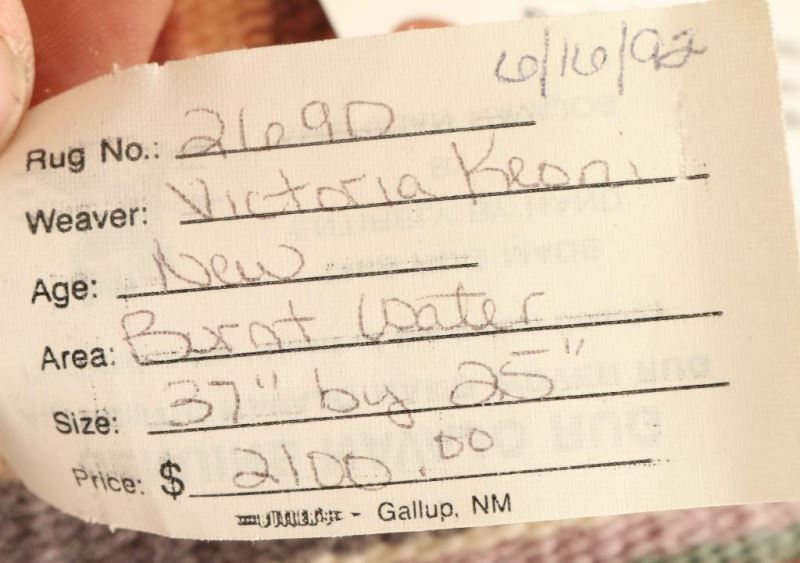 6/16/92
Rug No.: 2690
Weaver: Victoria Keoni
Age: New
Area: Burnt Water
Size: 37" by 25"
Price: $ 2100.00
- Gallup, NM